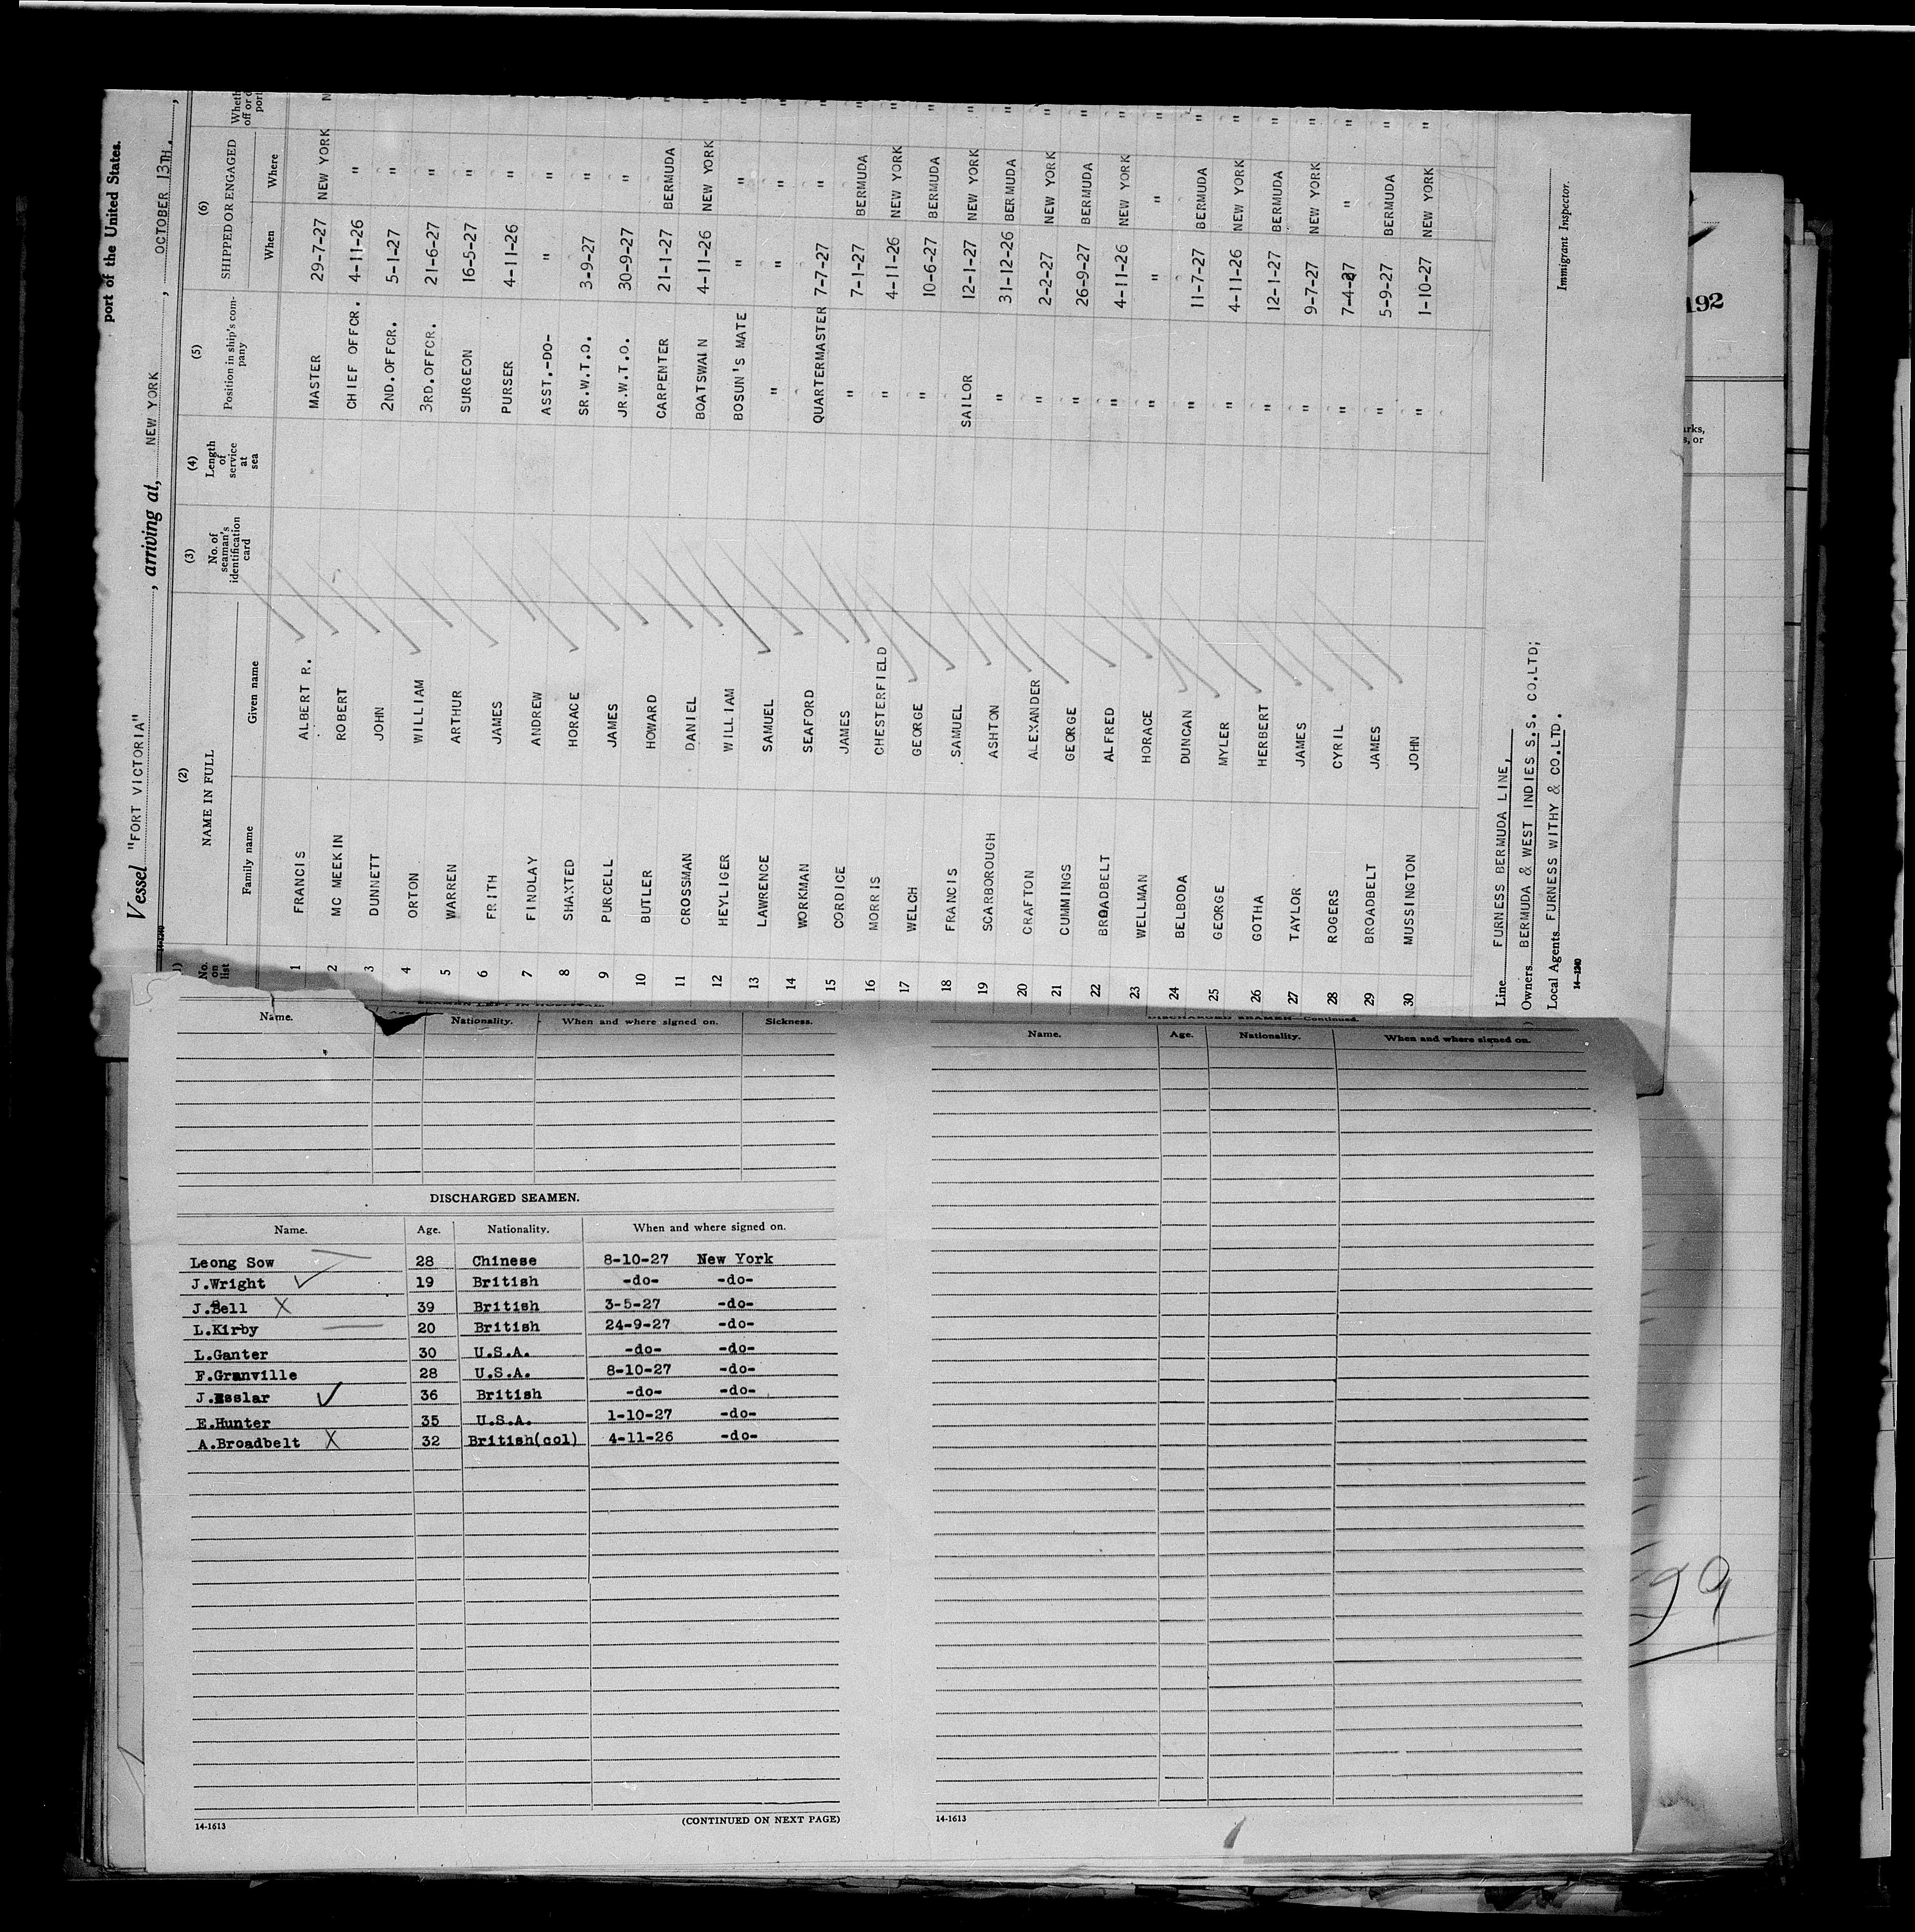 port of the United States.
Vessel "FORT VICTORIA", arriving at, NEW YORK, OCTOBER 13TH.,
14-1240
No. on list
(2) NAME IN FULL
Family name Given name
(3) No. of seaman's identification card
(4) Length of service at sea
(5) Position in ship's company
(6) SHIPPED OR ENGAGED
When Where
1 FRANCIS ALBERT R. MASTER 29-7-27 NEW YORK
2 MC MEEKIN ROBERT CHIEF OFFCR. 4-11-26 " "
3 DUNNETT JOHN 2ND.OFFCR. 5-1-27 " "
4 ORTON WILLIAM 3RD.OFFCR. 21-6-27 " "
5 WARREN ARTHUR SURGEON 16-5-27 " "
6 FRITH JAMES PURSER 4-11-26 " "
7 FINDLAY ANDREW ASST.-DO- " " "
8 SHAXTED HORACE SR.W.T.O. 3-9-27 " "
9 PURCELL JAMES JR.W.T.O. 30-9-27 " "
10 BUTLER HOWARD CARPENTER 21-1-27 BERMUDA "
11 CROSSMAN DANIEL BOATSWAIN 4-11-26 NEW YORK "
12 HEYLIGER WILLIAM BOSUN'S MATE " " "
13 LAWRENCE SAMUEL " " " "
14 WORKMAN SEAFORD QUARTERMASTER 7-7-27 " "
15 CORDICE JAMES " 7-1-27 BERMUDA "
16 MORRIS CHESTERFIELD " 4-11-26 NEW YORK "
17 WELCH GEORGE " 10-6-27 BERMUDA "
18 FRANCIS SAMUEL SAILOR 12-1-27 NEW YORK "
19 SCARBOROUGH ASHTON " 31-12-26 BERMUDA "
20 CRAFTON ALEXANDER " 2-2-27 NEW YORK "
21 CUMMINGS GEORGE " 26-9-27 BERMUDA "
22 BROADBELT ALFRED " 4-11-26 NEW YORK "
23 WELLMAN HORACE " " " "
24 BELBODA DUNCAN " 11-7-27 BERMUDA "
25 GEORGE MYLER " 4-11-26 NEW YORK "
26 GOTHA HERBERT " 12-1-27 BERMUDA "
27 TAYLOR JAMES " 9-7-27 NEW YORK "
28 ROGERS CYRIL " 7-4-27 " "
29 BROADBELT JAMES " 5-9-27 BERMUDA "
30 MUSSINGTON JOHN " 1-10-27 NEW YORK "
Line FURNESS BERMUDA LINE,
Owners BERMUDA & WEST INDIES S.S. CO.LTD;
Local Agents FURNESS WITHY & CO.LTD.
Immigrant Inspector.
14-1240
192
SEAMEN LEFT IN HOSPITAL
Name. Age. Nationality. When and where signed on. Sickness.
DISCHARGED SEAMEN.
Name. Age. Nationality. When and where signed on.
Leong Sow 28 Chinese 8-10-27 New York
J.Wright 19 British -do- -do-
J.Bell X 39 British 3-5-27 -do-
L.Kirby 20 British 24-9-27 -do-
L.Ganter 30 U.S.A. -do- -do-
F.Granville 28 U.S.A. 8-10-27 -do-
J.Esslar 36 British -do- -do-
E.Hunter 35 U.S.A. 1-10-27 -do-
A.Broadbelt X 32 British(col) 4-11-26 -do-
14-1613
(CONTINUED ON NEXT PAGE)
DISCHARGED SEAMEN—Continued.
Name. Age. Nationality. When and where signed on.
14-1613
99